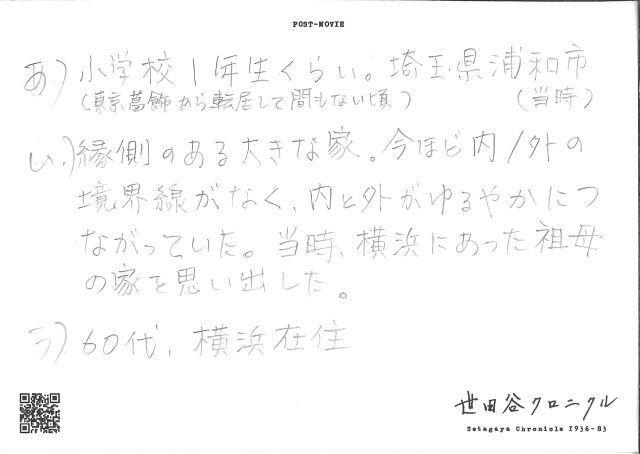 POST-MOVIE
あ) 小学校1年生くらい。埼玉県浦和市
(東京葛飾から転居して間もない頃) (当時)
い) 縁側のある大きな家。今ほど内/外の
境界線がなく、内と外がゆるやかにつ
ながっていた。当時、横浜にあった祖母
の家を思い出した。
う) 60代、横浜在住
世田谷クロニクル
Setagaya Chronicle 1936-83